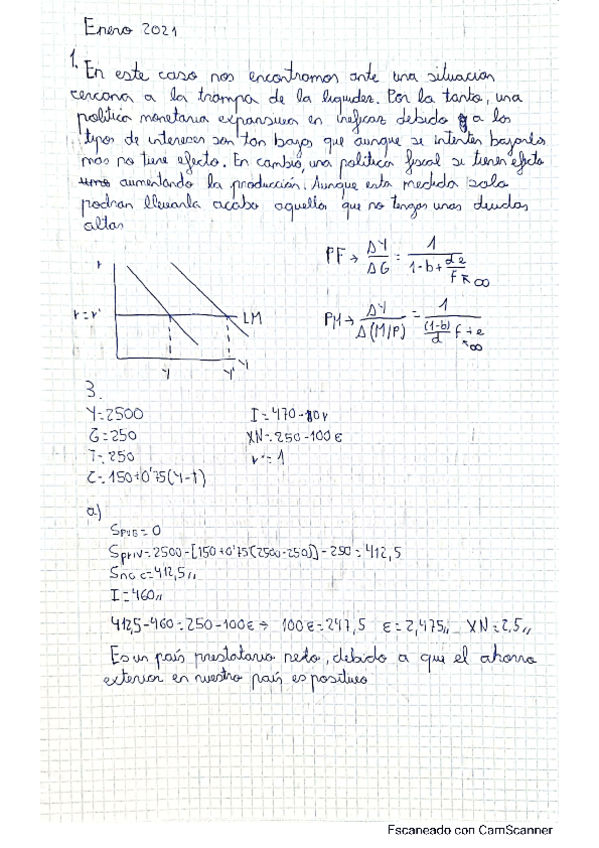 Enero 2021
1. En este caso nos encontramos ante una situación
cercana a la trampa de la liquidez. Por lo tanto, una
política monetaria expansiva en ineficaz debido a los
tipos de intereses son tan bajos que aunque se intenten bajarlos
mas no tiene efecto. En cambio, una politica fiscal si tienen efecto
aumentando la producción. Aunque esta medida solo
podran llevarla acabo aquellos que no tengas unas deudas
altas
PF → ΔY/ΔG = 1/(1-b+de/f) ↖∞
r
r=r* LM
PM → ΔY/Δ(M/P) = 1/((1-b)/d f+e) ↖∞
Y Y' Y
3.
Y=2500 I=470-10r
G=250 XN=250-100ε
T=250 r*=1
C=150+0'75(Y-T)
a)
Spub=0
Spriv=2500-[150+0'75(2500-250)]-250=412,5
Snac=412,5,,
I=460,,
412,5-460=250-100ε → 100ε=247,5 ε=2,475,, XN=2,5,,
Es un país prestatario neto, debido a que el ahorro
exterior en nuestro país es positivo
Escaneado con CamScanner